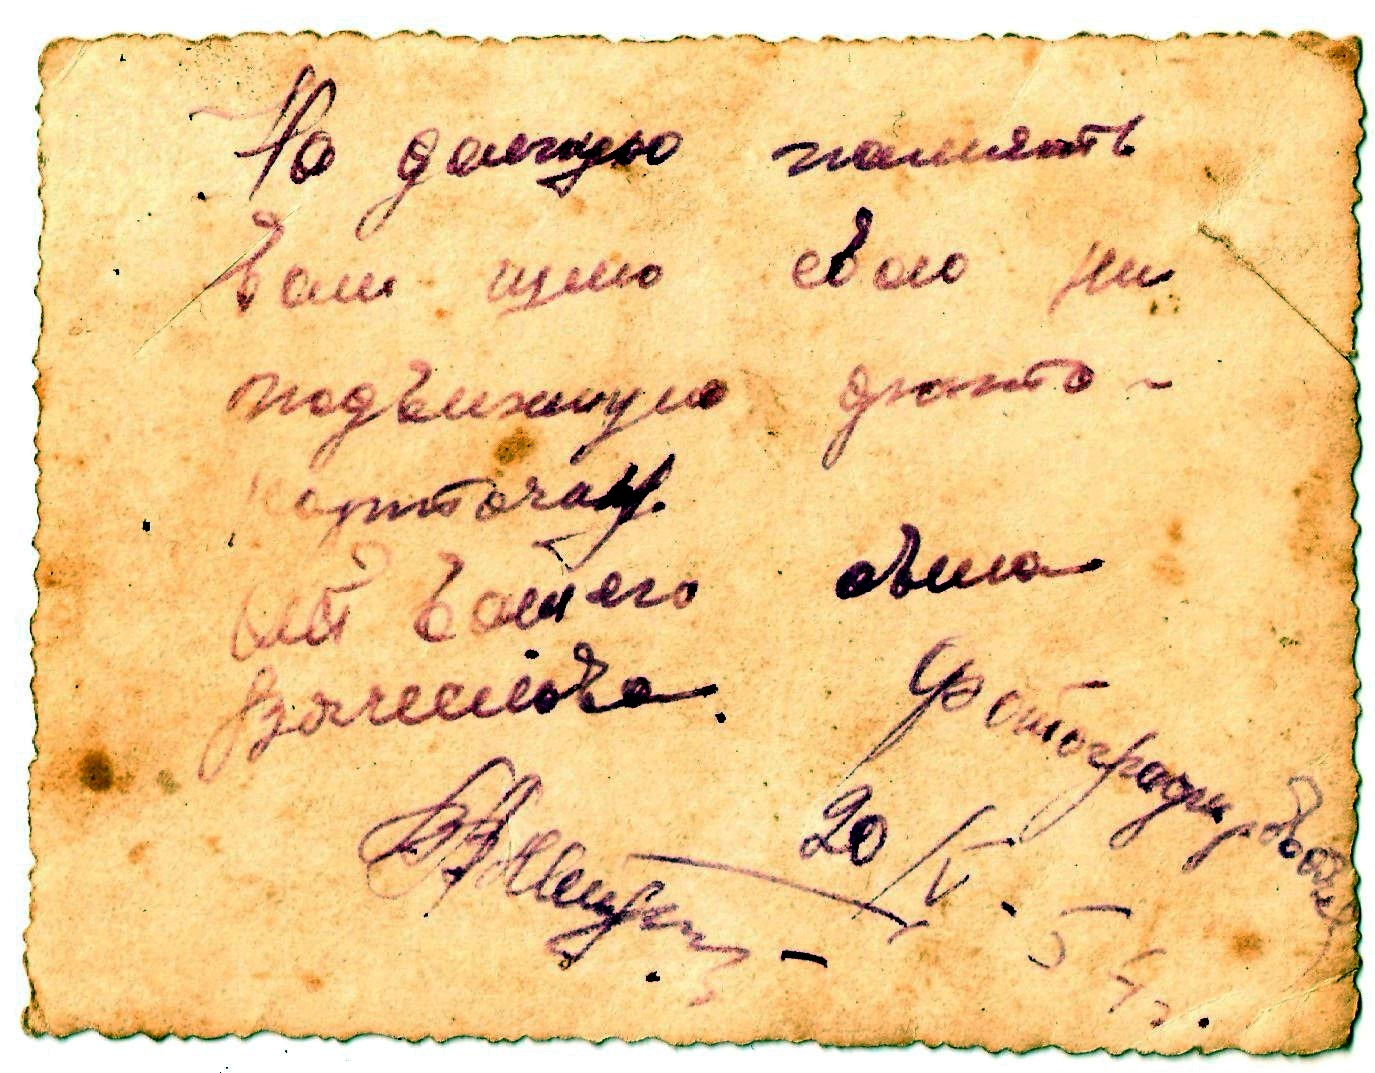 На долгую память
Вам шлю свою не
подвижную фото-
карточку.
от Вашего сына
Вячеслава.
Фотографировался
20/V-54г.